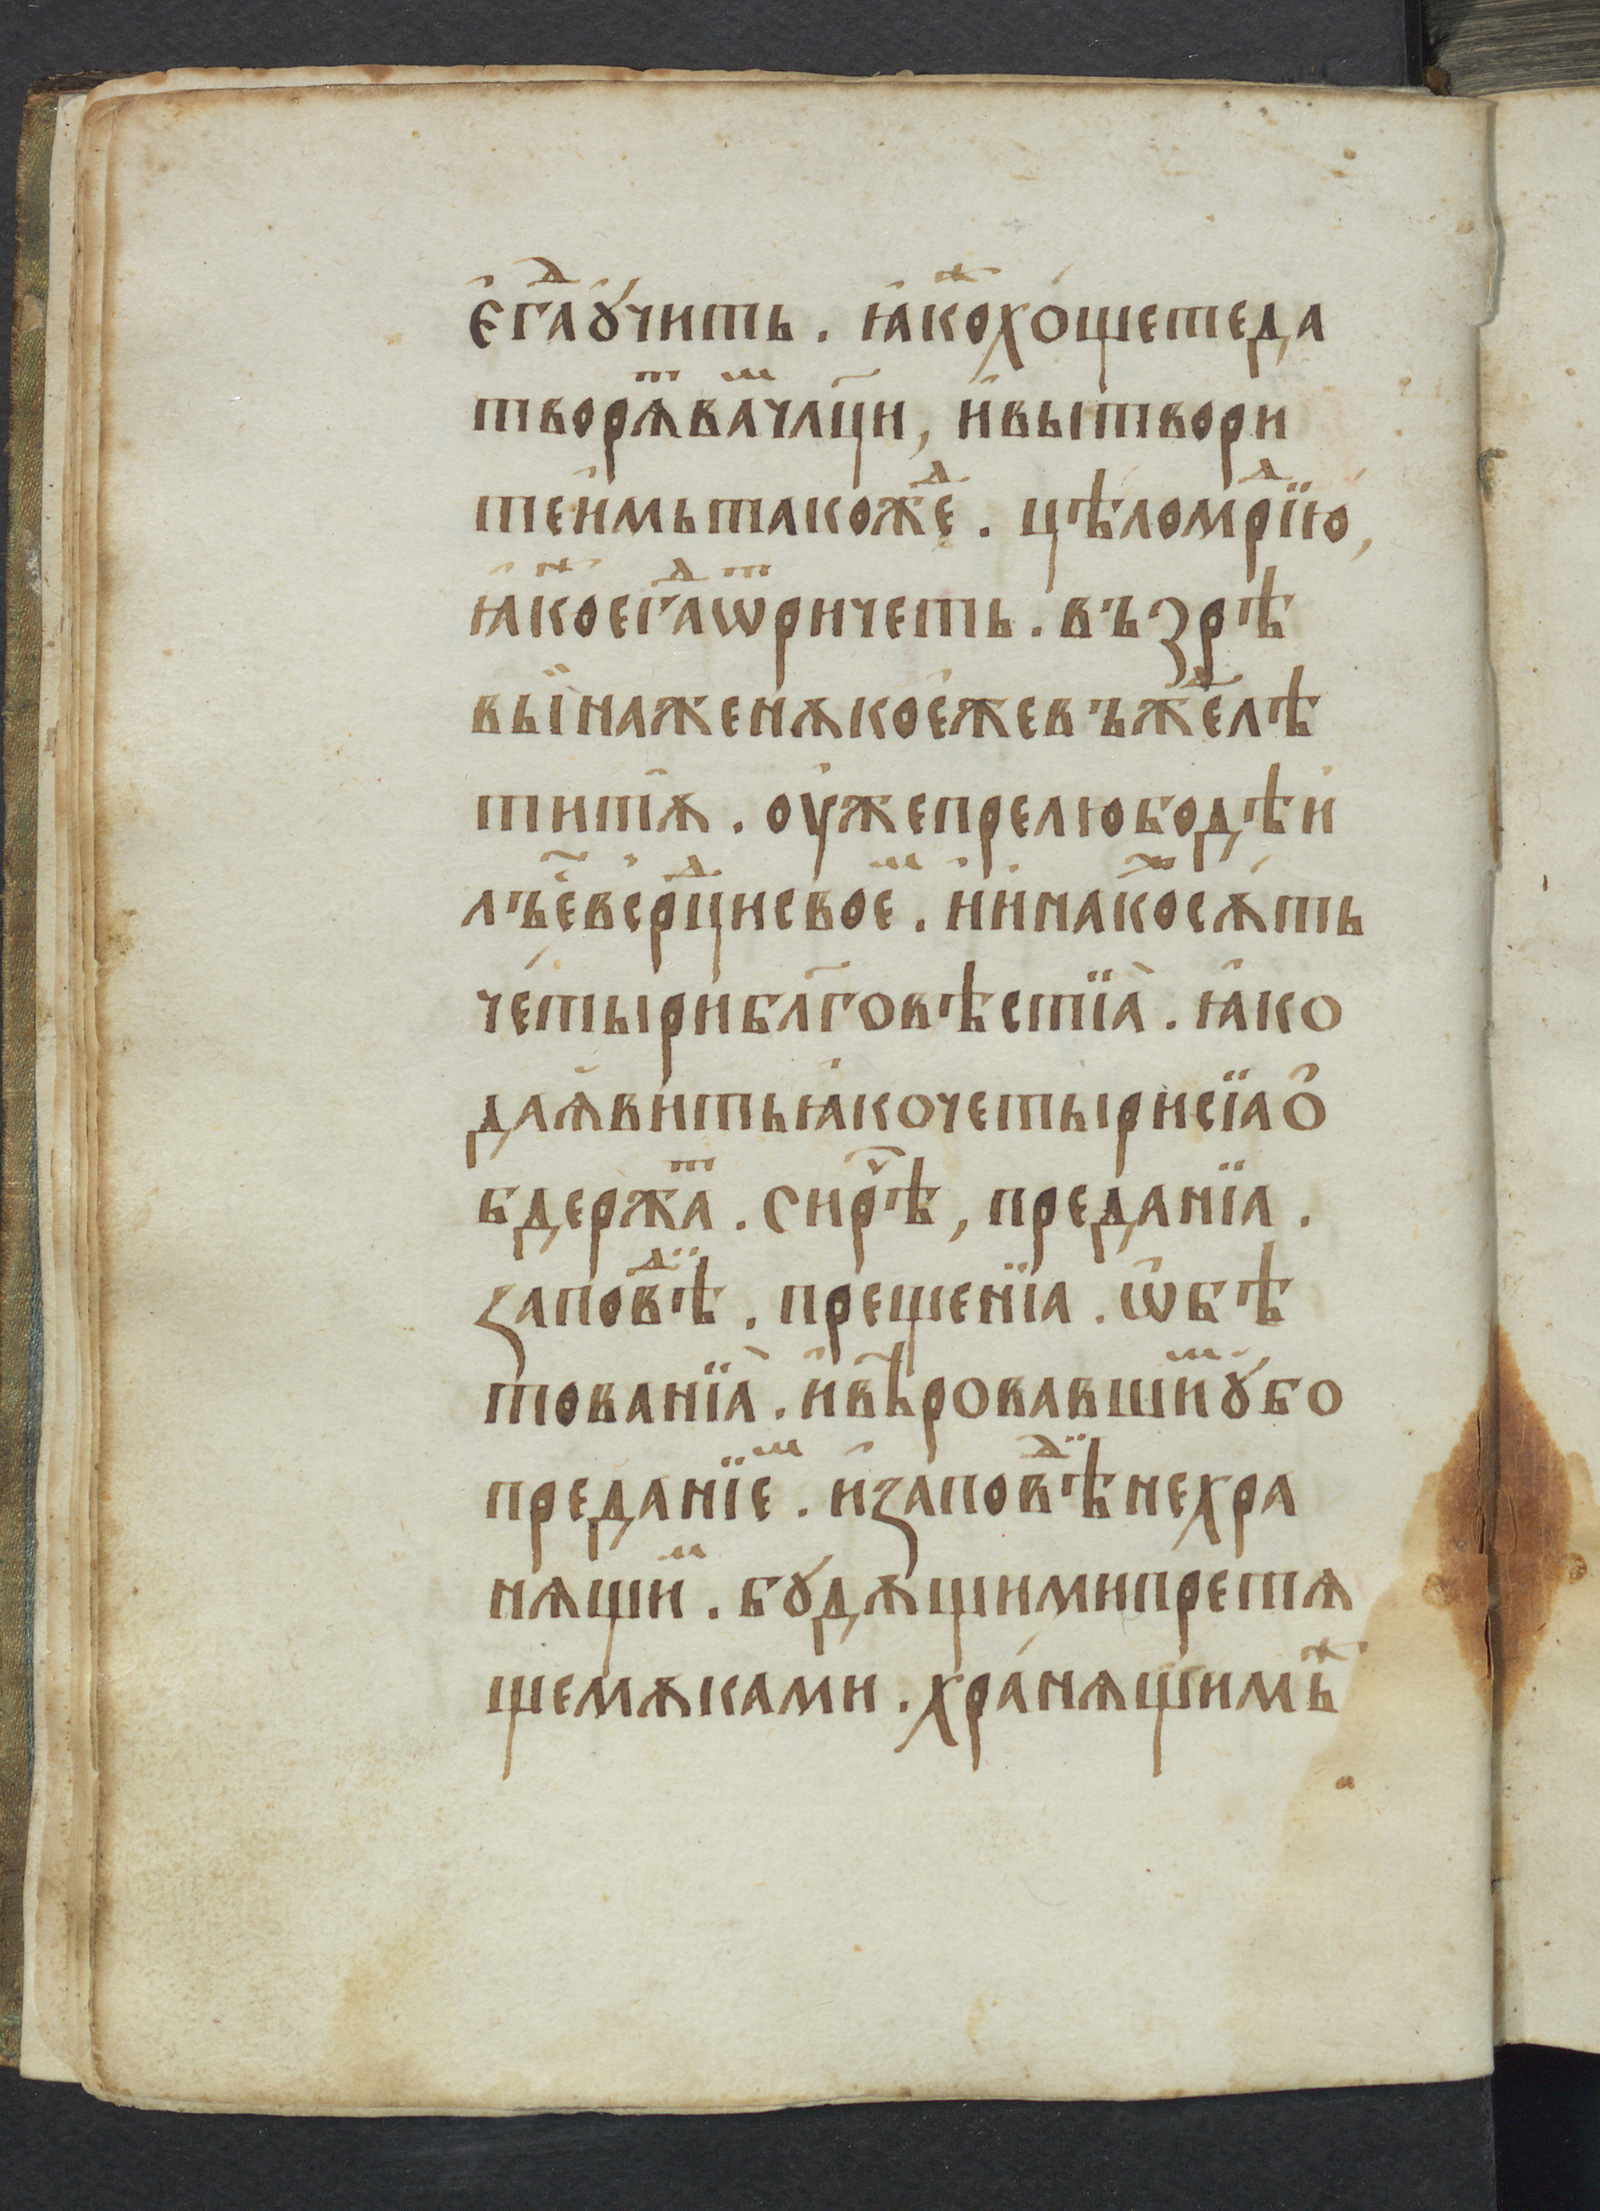 є҆гⷣаꙋ҆́чить . ꙗ҆кⷤохо́щетеда
творѧⷮвамⷨчл҃ци , и҆вытвори
теи҆мьтакожеⷣ . цѣломрⷣїю ,
ꙗ҆кⷤоегⷣаѿричеть . възрѣ
выи҆наженѫкое҆жевъжⷣелѣ
титїѧ . оу҆жепрелюбодѣи
лъе҆стьвсерⷣцисвоеⷨ . и҆и҆накⷤосѫть
че́тырибл҃говѣстїа . ꙗ҆ко
даѧ҆витьꙗ҆кочетырисїао҆
бдержаⷮ . сирѣ҃ч , преданїа .
заповⷣѣ . прещенїа . ѡ҆бѣ
тованїа . и҆вѣровавшиⷨꙋ҆бо
преданїеⷨ . и҆заповⷣѣнехра
нѧщиⷨ . бꙋдѫщимипретѧ
щемѫками . хра́нѧщимъⷤ